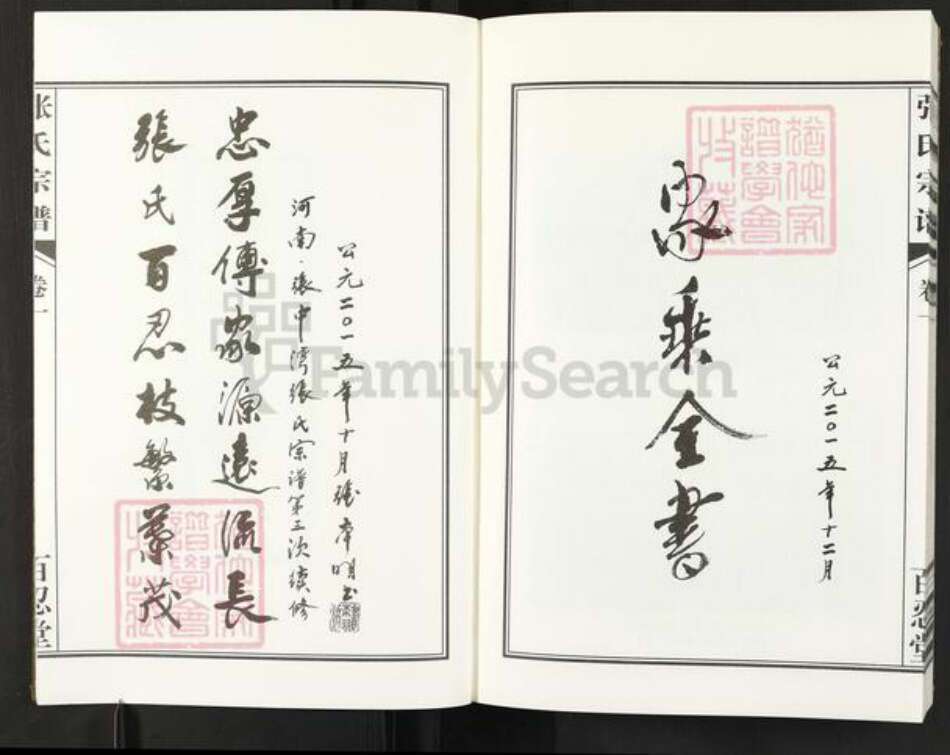 张氏宗谱
卷一
百忍堂
家乘全書
公元二〇一五年十二月
公元二〇一五年十月張本明書
河南·張中灣張氏宗譜第三次續修
忠厚傳家源遠流長
張氏百忍枝繁葉茂
张氏宗谱
卷一
百忍堂
猶他家
譜學會
收藏
猶他家
譜學會
收藏
FamilySearch